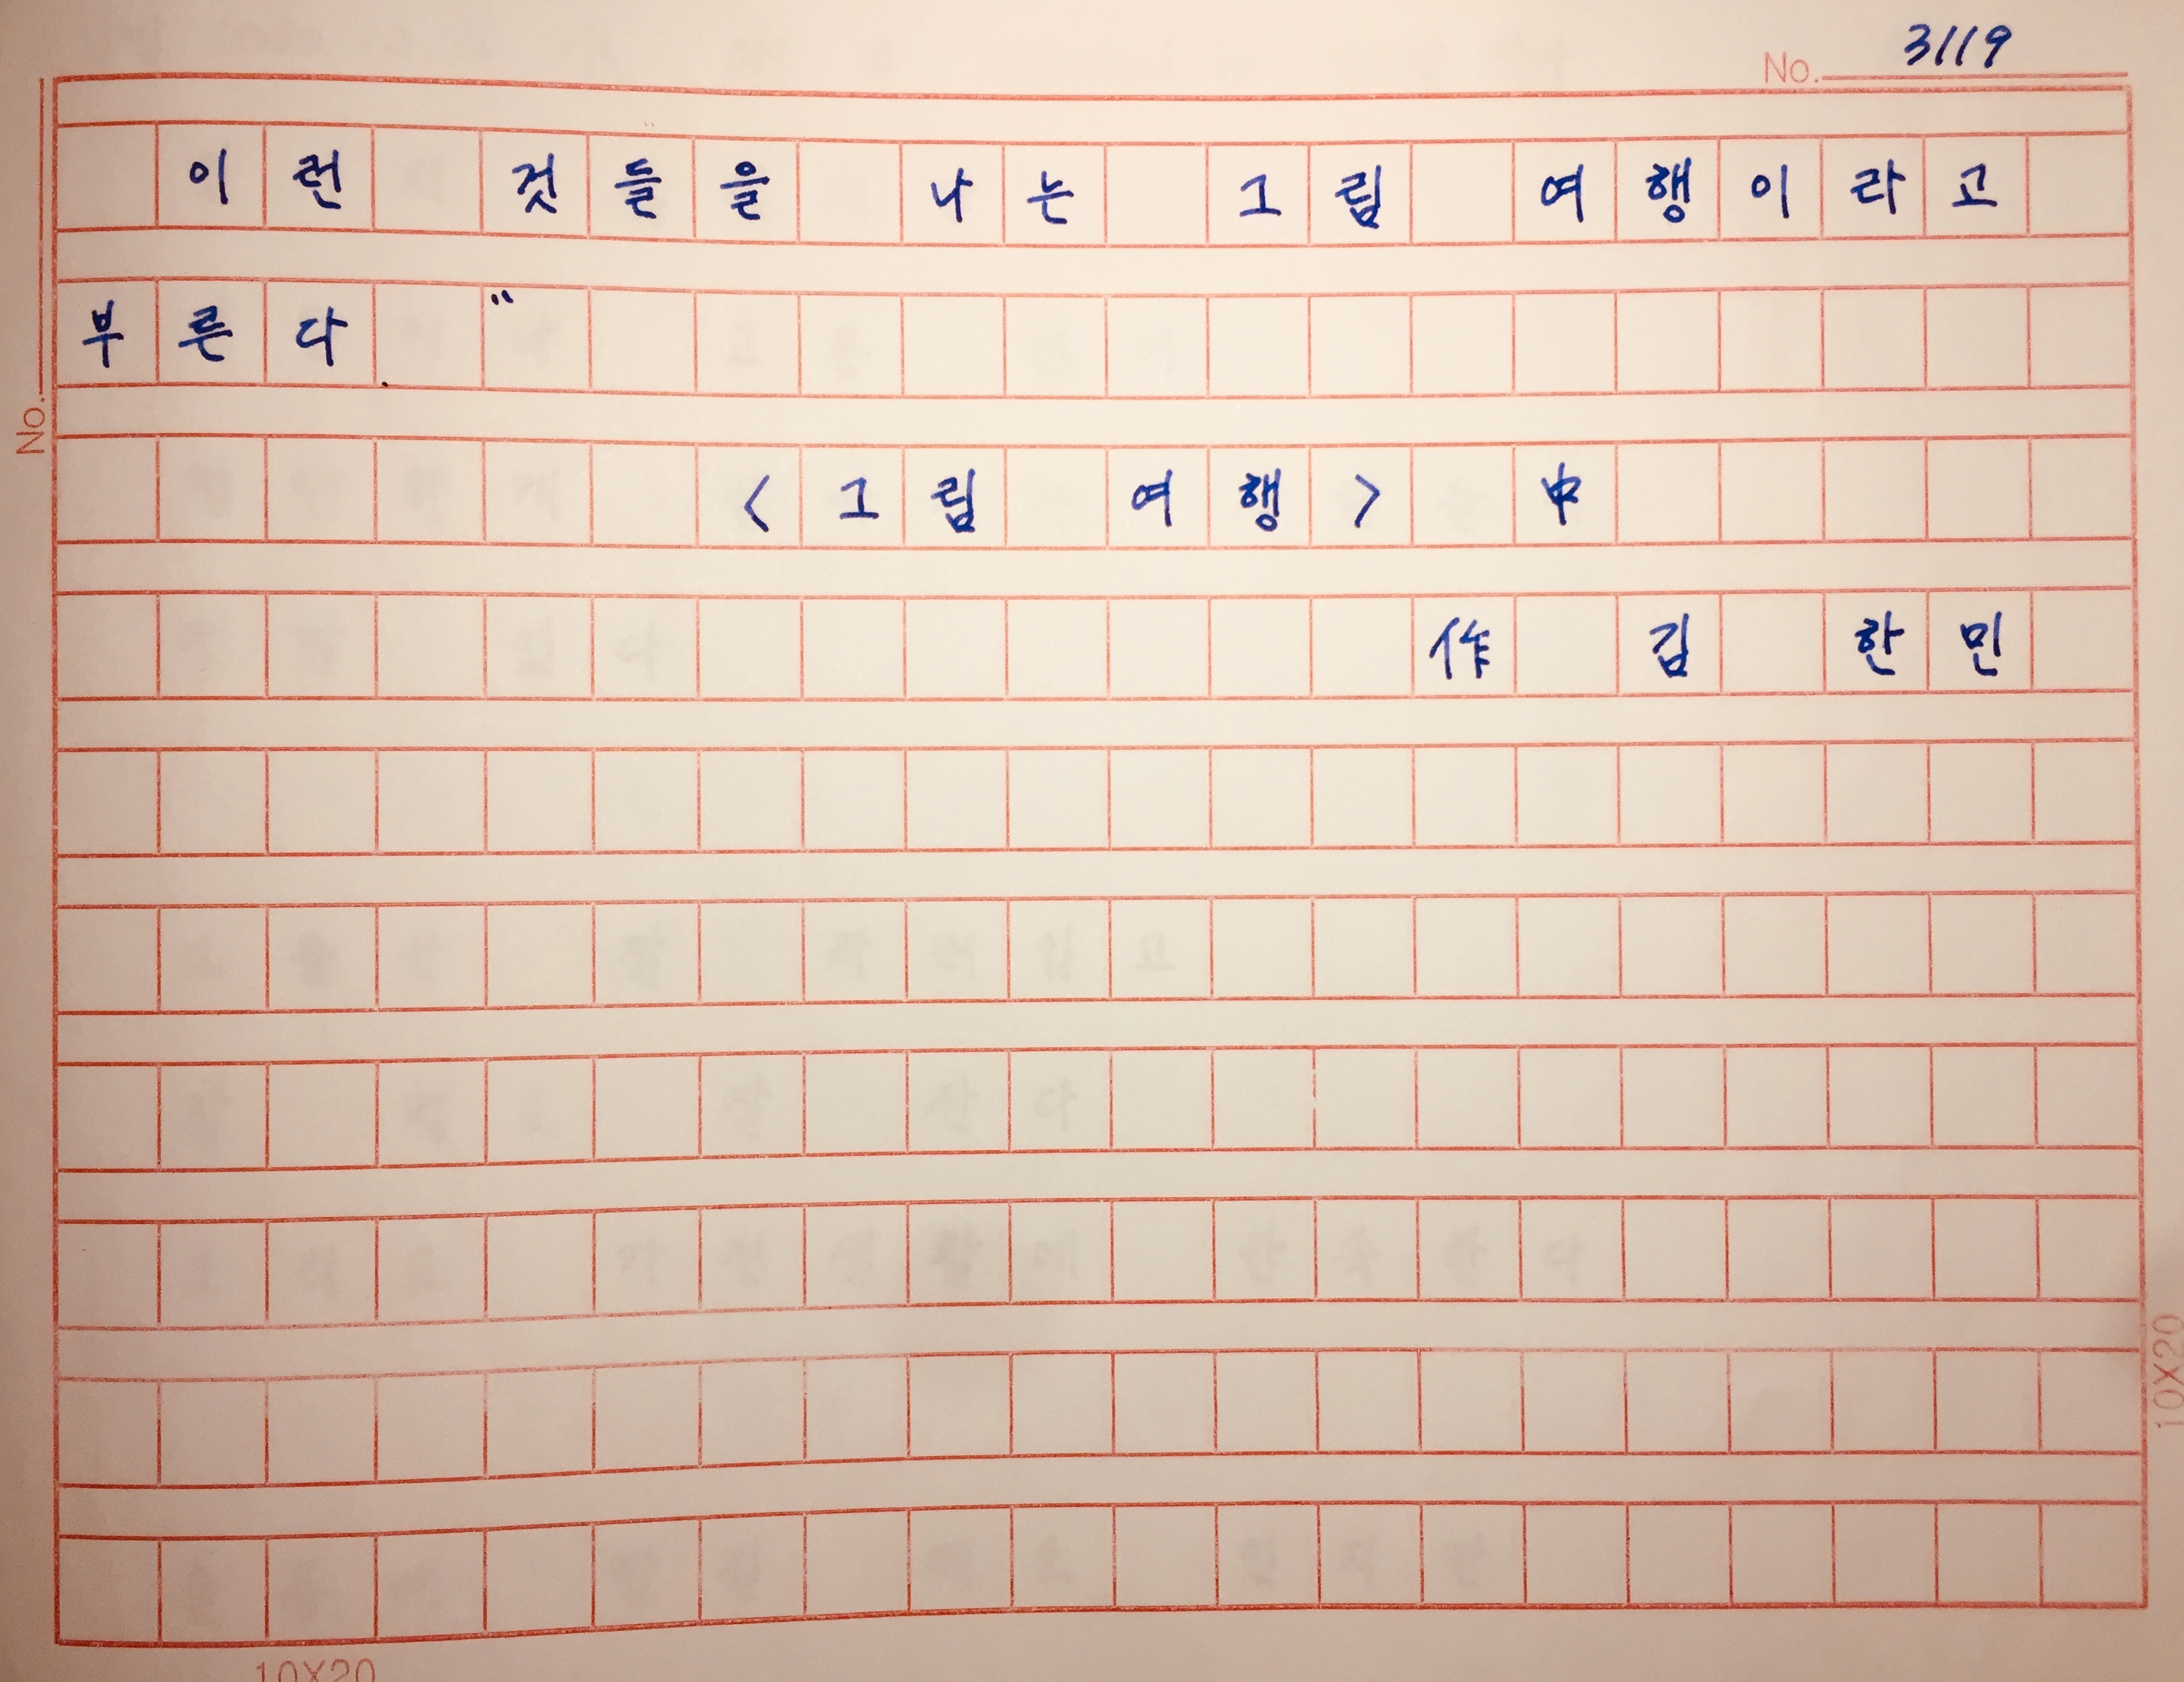 No. 3119
이런 것들을 나는 그림 여행이라고
부른다. "
<그림 여행> 中
作 김 한민
No.
10X20
10X20